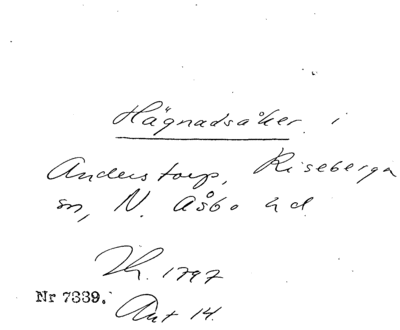 Hägnadsåker i
Anderstorp, Riseberga
sn, N. Åsbo hd.
Th. 1797
Nr 7339.
Akt 14.